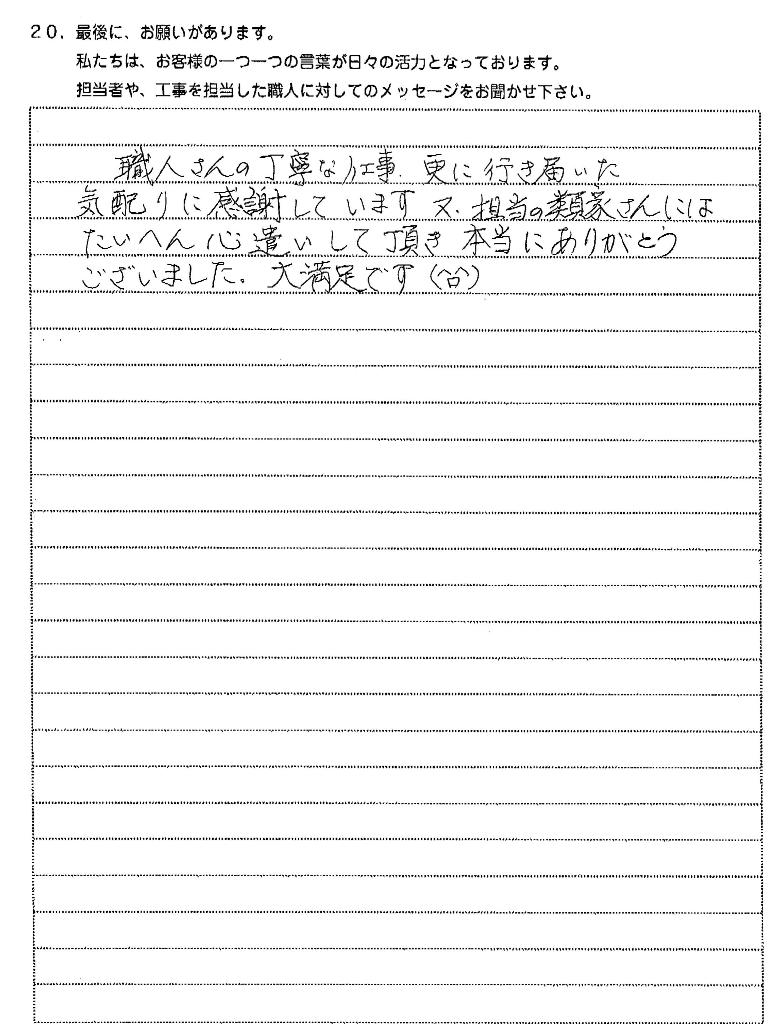 20. 最後に、お願いがあります。
私たちは、お客様の一つ一つの言葉が日々の活力となっております。
担当者や、工事を担当した職人に対してのメッセージをお聞かせ下さい。
職人さんの丁寧な工事. 更に行き届いた
気配りに感謝しています 又. 担当の類家さんには
たいへん心遣いして頂き 本当にありがとう
ございました. 大満足です (^o^)